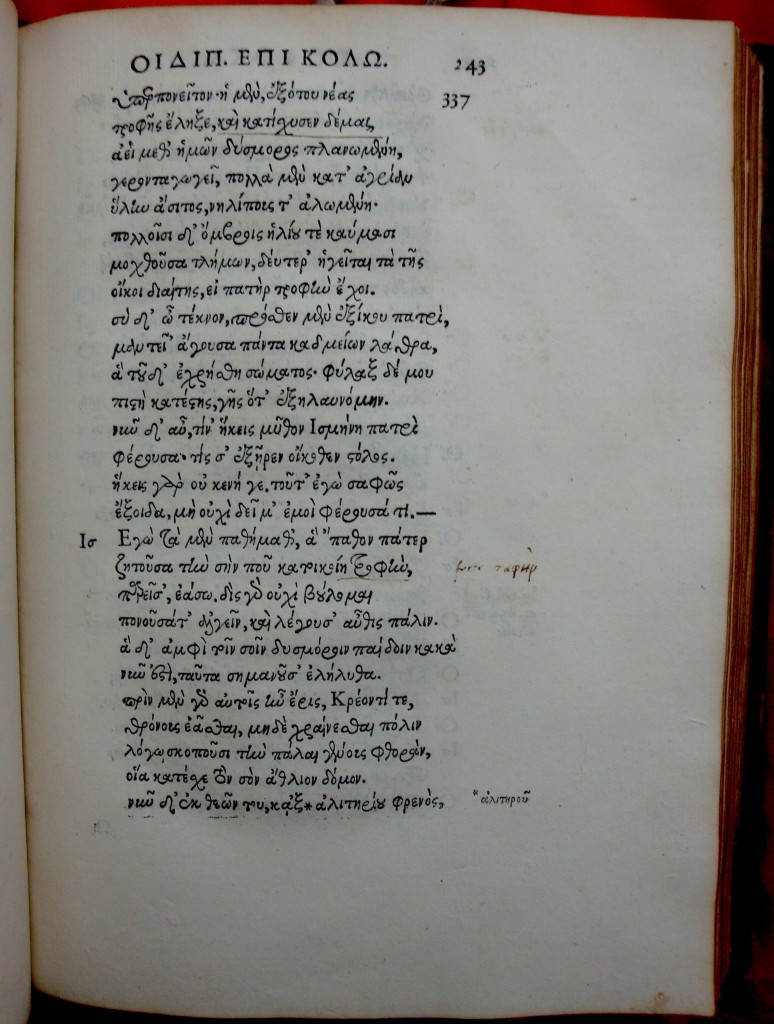 ΟΙΔΙΠ. ΕΠΙ ΚΟΛΩ. 243
ὑπερπονεῖτον· ἡ μὲν, ἐξότου νέας 337
τροφῆς ἔληξε, καὶ κατίχυσεν δέμας,
ἀεὶ μεθ' ἡμῶν δύσμορος πλανωμένη,
γερονταγωγεῖ, πολλὰ μὲν κατ' ἀγρίαν
ὕλην ἄσιτος, νηλίποις τ' ἀλωμένη·
πολλοῖσι δ' ὄμβροις ἡλίου τὲ καύμασι
μοχθοῦσα τλήμων, δεύτερ' ἡγεῖται τὰ τῆς
οἴκοι διαίτης, εἰ πατὴρ τροφὴν ἔχοι.
σὺ δ' ὦ τέκνον, πρόσθεν μὲν ἐξίκου πατρὶ,
μαντεῖ' ἄγουσα πάντα καδμείων λάθρα,
ἃ τοῦδ' ἐχρήσθη σώματος· φύλαξ δέ μου
πιστὴ κατέστης, γῆς ὅτ' ἐξηλαυνόμην.
νῦν δ' αὖ, τίν' ἥκεις μῦθον Ισμήνη πατρὶ
φέρουσα· τίς σ' ἐξῆρεν οἴκοθεν στόλος.
ἥκεις γὰρ οὐ κενή γε, τοῦτ' ἐγὼ σαφῶς
ἔξοιδα, μὴ οὐχὶ δεῖμ' ἐμοὶ φέρουσά τι.—
Ισ Εγὼ τὰ μὲν παθήμαθ', ἃ 'παθον πάτερ
ζητοῦσα τὴν σὴν ποῦ κατοικοίη τροφὴν, ταφὴν
παρεῖσ', ἐάσω. δὶς γὰρ οὐχὶ βούλομαι
πονοῦσάτ' ἀλγεῖν, καὶ λέγουσ' αὖθις πάλιν.
ἃ δ' ἀμφὶ τοῖν σοῖν δυσμόροιν παίδοιν κακὰ
νῦν ἐστὶ, ταῦτα σημανοῦσ' ἐλήλυθα.
πρὶν μὲν γὰρ αὐτοῖς ἦν ἔρις, Κρέοντί τε,
θρόνοις ἐᾶσθαι, μηδὲ χραίνεσθαι πόλιν
λόγῳ σκοποῦσι τὴν πάλαι γένοις φθορὰν,
οἵα κατέσχε τὸν σὸν ἄθλιον δόμον.
νῦν δ' ἐκ θεῶν του, κἀξ* ἀλιτηρίου φρενὸς, *ἀλιτηροῦ